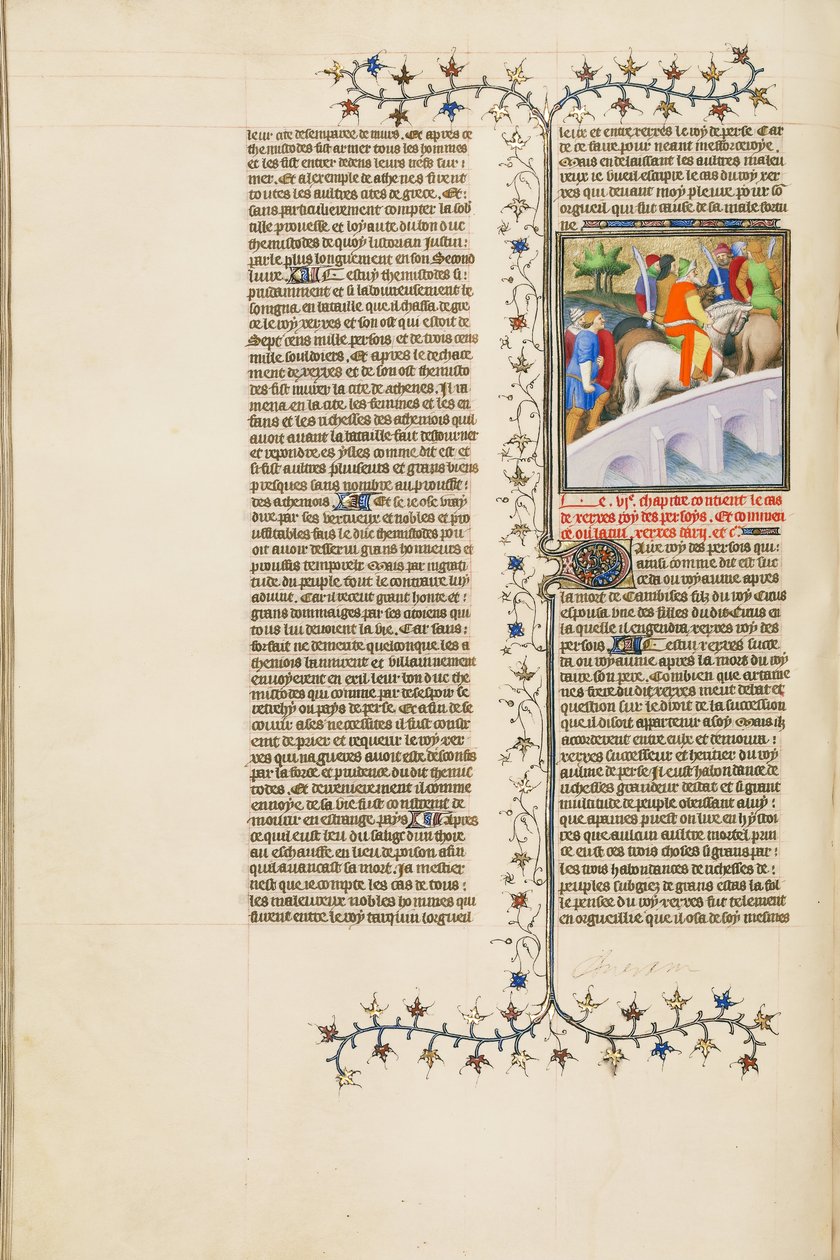 leur cite desemparee de murs. Et apres ce
themistodes fist armer tous les hommes
et les fist entrer dedens leurs nefs sur
mer. Et a lexemple de athenes firent
toutes les aultres cites de grece. Et
sans particulierement compter la sob
tille prouesse et loyaute du bon duc
themistodes de quoy listorian Justin
parle plus longuement en son Second
livre. Cestuy themistodes si
prudamment et si laboureusement be
songna en bataille que il chassa de gre
ce le roy xerxes et son ost qui estoit de
Sept cens mille persois et de trois cens
mille souldoiers. Et apres le dechace
ment de xerxes et de son ost themisto
des fist murer la cite de athenes. Il ra
mena en la cite les femmes et les en
fans et les richesses des atheniois quil
avoit avant la bataille fait destourner
et repondre es ysles comme dit est et
si fist aultres pluseurs et grans biens
presques sans nombre au proufit
des atheniois. Et se ie ose vray
dire par ses vertueux et nobles et pro
ufitables fais le duc themistodes pou
oit avoir desservi grans honneurs et
proufis temporelz Mais par ingrati
tude du peuple tout le contraire luy
advint. Car il receut grant honte et
grans dommaiges par ses citoiens qui
tous lui devoient la vie. Car sans
forfait ne demerite quelconque les a
theniois lannirent et villainnement
envoyerent en exil leur bon duc the
mistodes qui comme par desespoir se
retrehy ou pays de perse. Et a fin de se
courir a ses necessites il fust contr
eint de prier et requerir le roy xer
xes qui nagueres avoit este desconfis
par la force et prudence du dit themis
todes. Et derrenierement il comme
ennoye de sa vie fust constreint de
mourir en estrange pays Apres
ce quil eust beu du sang dun thore
au eschauffe en lieu de poison afin
quil avancast sa mort. Ja mestier
nest que ie compte les cas de tous
les maleureux nobles hommes qui
furent entre le roy tarquin lorgueil
leux et entre xerxes le roy de perse Car
de ce faire pour neant mesforceroye.
Mais en delaissant les aultres maleu
reux ie vueil escripre le cas du roy xer
xes qui devant moy pleure pour so
orgueil qui fut cause de sa male fortu
ne
Le. vi. chapitre contient le cas
de xerxes roy des persoys. Et commen
ce ou latin xerxes darij. et c
Daire roy des persois qui
ainsi comme dit est suc
ceda ou royaume apres
la mort de Cambises filz du roy Cirus
espousa une des filles du dit Cirus en
la quelle il engendra xerxes roy des
persois. Cestui xerxes succe
da ou royaume apres la mort du roy
daire son pere. Combien que artame
nes frere du dit xerxes meut debat et
question sur le droit de la succession
que il disoit appartenir a soy Mais ilz
accorderent entre eulx et demoura
xerxes successeur et heritier du roy
aulme de perse Il eust habondance de
richesses grandeur destat et si grant
multitude de peuple obeissant a luy
que a paines puest on lire en hystoi
res que aulcun aultre mortel prin
ce eust ces trois choses si grans par
les trois habondances de richesses de
peuples subgiez de grans estas la fol
le pensee du roy xerxes fut telement
en orgueillie que il osa de soy mesmes